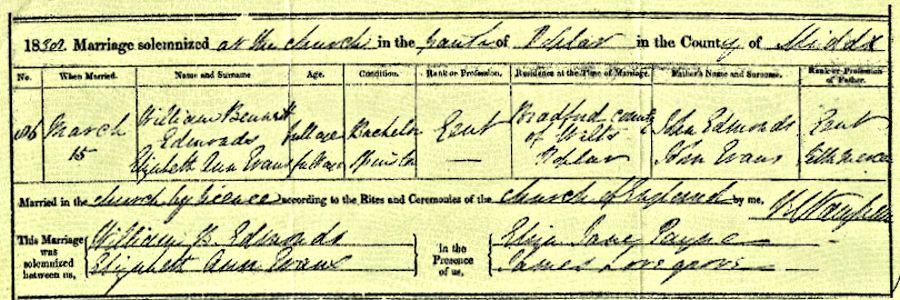 1830. Marriage solemnized at the church in the Parish of Poplar in the County of Middx
No. When Married. Name and Surname Age. Condition. Rank or Profession. Residence at the Time of Marriage. Father's Name and Surname. Rank or Profession of Father.
March 15 William Bennett Edmonds full age Bachelor Gent Bradford county of Wilts John Edmonds Gent
Elizabeth Ann Evans full age Spinster — Poplar John Evans
Married in the church by licence according to the Rites and Ceremonies of the church of England by me,
This Marriage was solemnized between us, William B. Edmonds
Elizabeth Ann Evans
In the Presence of us, Eliza Jane Payne
James Lovegrove